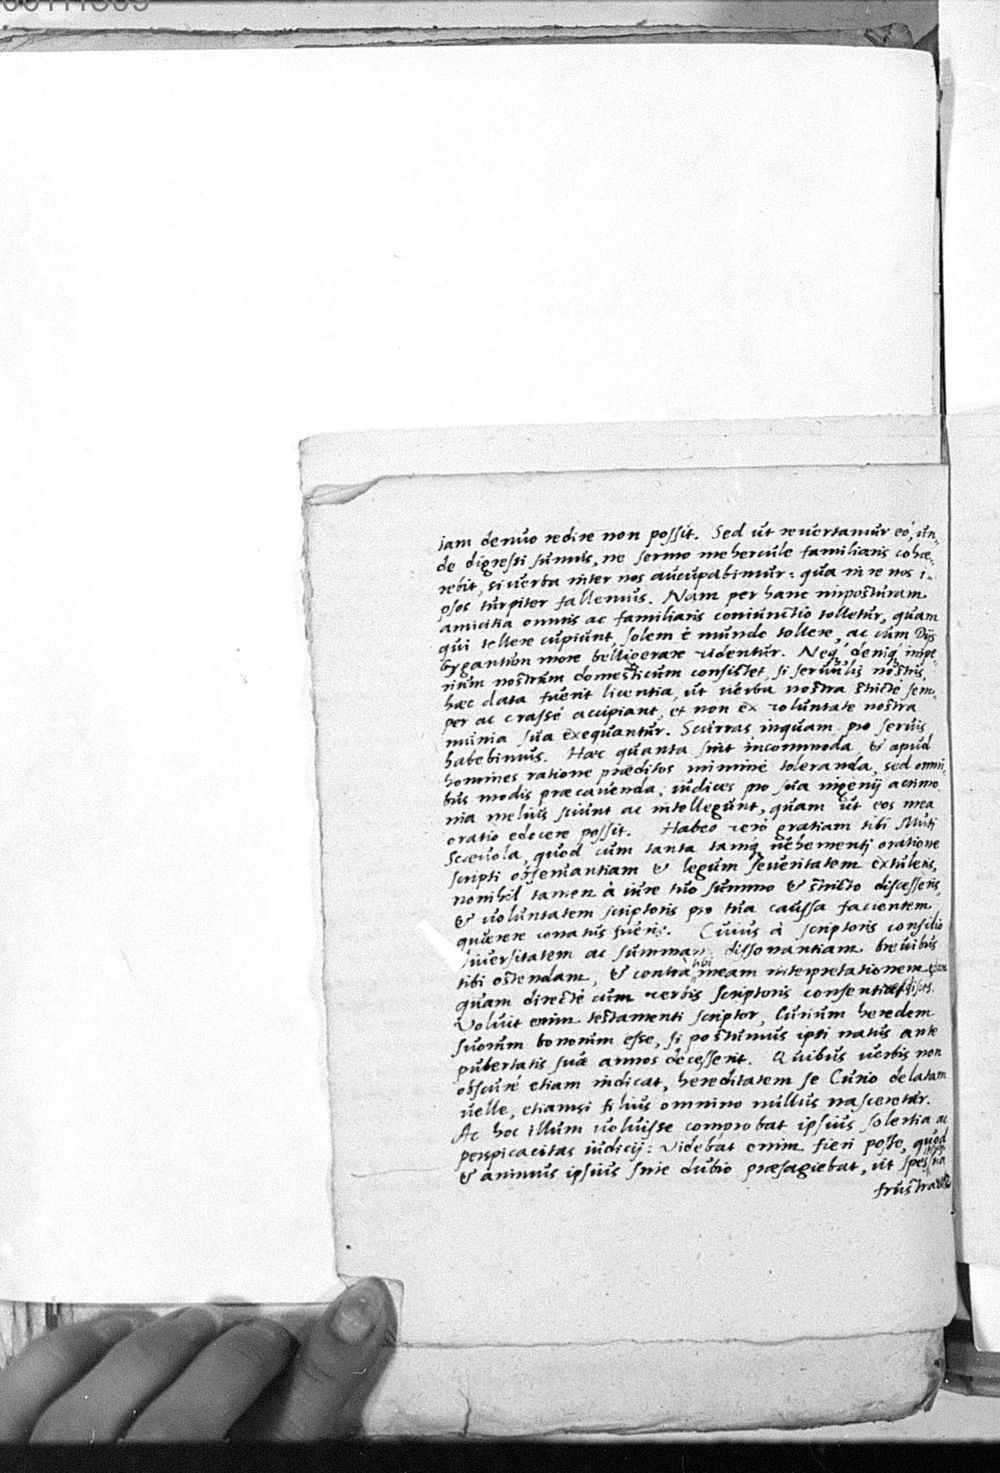 iam denuo redire non possit. Sed ut revertamur eó, un,,
de digressi sumus, ne sermo mehercule familiaris cohæ,,
rebit, si verba inter nos aucupabimur: qua in re nos i,,
psos turpiter fallemus. Nam per hanc imposturam
amicitia omnis ac familiaris coniunctio tolletur, quam
qui tollere cupiunt, solem è mundo tollere, ac cum Dijs
gygantum more belligerare videntur. Neq; deniq; impe,,
rium nostrum domesticum consistet, si servulis nostris,
hæc data fuerit licentia, ut verba nostra stricte sem,,
per ac crassé accipiant, et non ex voluntate nostra
munia sua exequantur. Scurras inquam pro servis
habebimus. Hæc quanta sint incommoda, & apud
homines ratione præditos minimè toleranda, sed omni,,
bus modis præcavenda, iudices pro sua ingenij acrimo
nia melius sciunt ac intellegunt, quam ut eos mea
oratio edocere possit. Habeo verò gratiam tibi Muti
Scævola, quod cum tanta tamq; vehementj oratione
scripti observantiam & legum severitatem extuleris,
nonihil tamen à iure tuo summo & stricto discesseris,
& voluntatem scriptoris pro tua caussa facientem
quærere conatus fueris. Cuius à scriptoris consilio
diversitatem ac summam dissonantiam brevibus
tibi ostendam, & contrà tibi meam interpretationem
quam directé cum verbis scriptoris consentiat
Voluit enim testamenti scriptor, Curium heredem
suorum bonorum esse, si postumus ipsi natus ante
pubertatis suæ annos decesserit. Quibus verbis non
obscuré etiam indicat, hereditatem se Curio delatam
velle, etiamsi filius omnino nullus nasceretur.
Ac hoc illum voluisse comprobat ipsius solertia ac
perspicacitas iudicij: Videbat enim fieri posse, quod
& animus ipsius sine dubio præsagiebat, ut spes